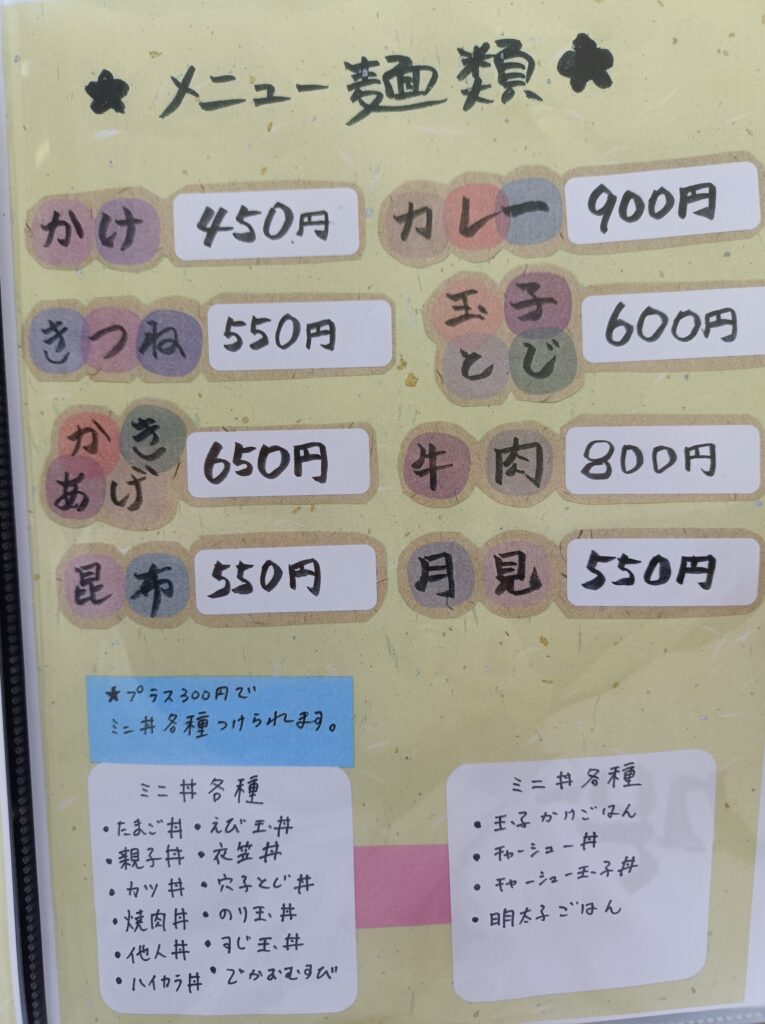 ★メニュー麺類★
かけ 450円
カレー 900円
きつね 550円
玉子とじ 600円
かきあげ 650円
牛肉 800円
昆布 550円
月見 550円
★プラス300円で
ミニ丼各種つけられます。
ミニ丼各種
・たまご丼 ・えび玉丼
・親子丼 ・衣笠丼
・カツ丼 ・穴子とじ丼
・焼肉丼 ・のり玉丼
・他人丼 ・すじ玉丼
・ハイカラ丼 ・でかおむすび
ミニ丼各種
・玉子かけごはん
・チャーシュー丼
・チャーシュー玉子丼
・明太子ごはん